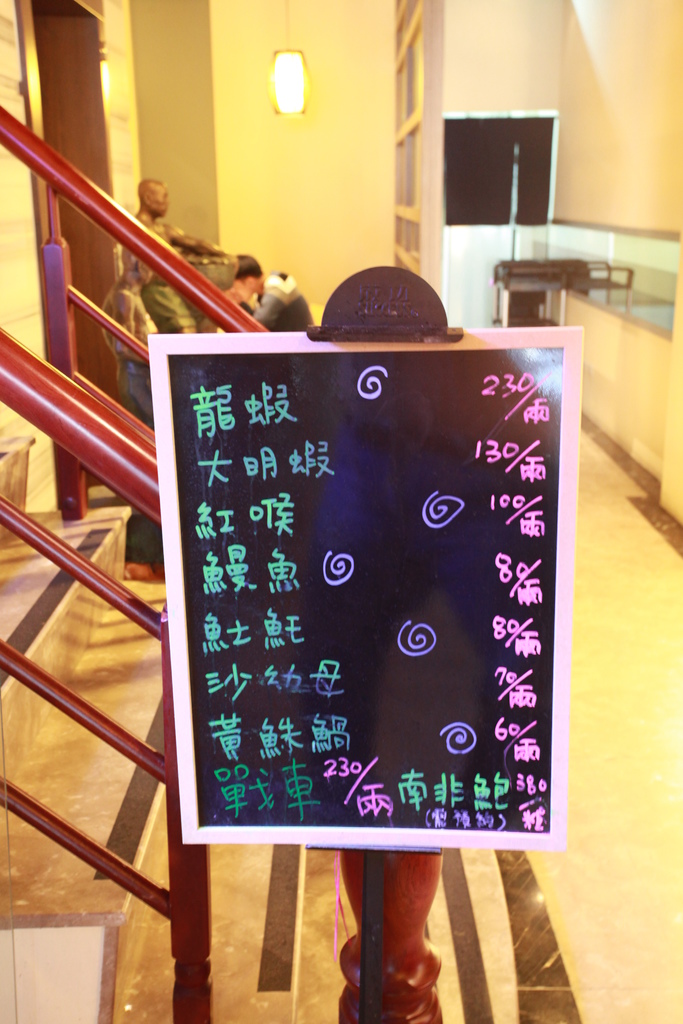 龍蝦 230/兩
大明蝦 130/兩
紅喉 100/兩
鰻魚 80/兩
魟魠 80/兩
沙幼母 70/兩
黃鮢鍋 60/兩
戰車 230/兩 南非鮑 380/粒
(需預約)